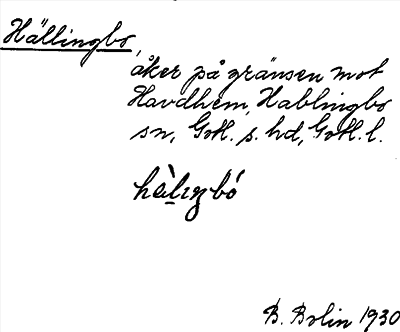 Hällingbo,
åker på gränsen mot
Havdhem, Hablingbo
sn, Gotl. s. hd, Gotl. l.
B. Bolin 1930